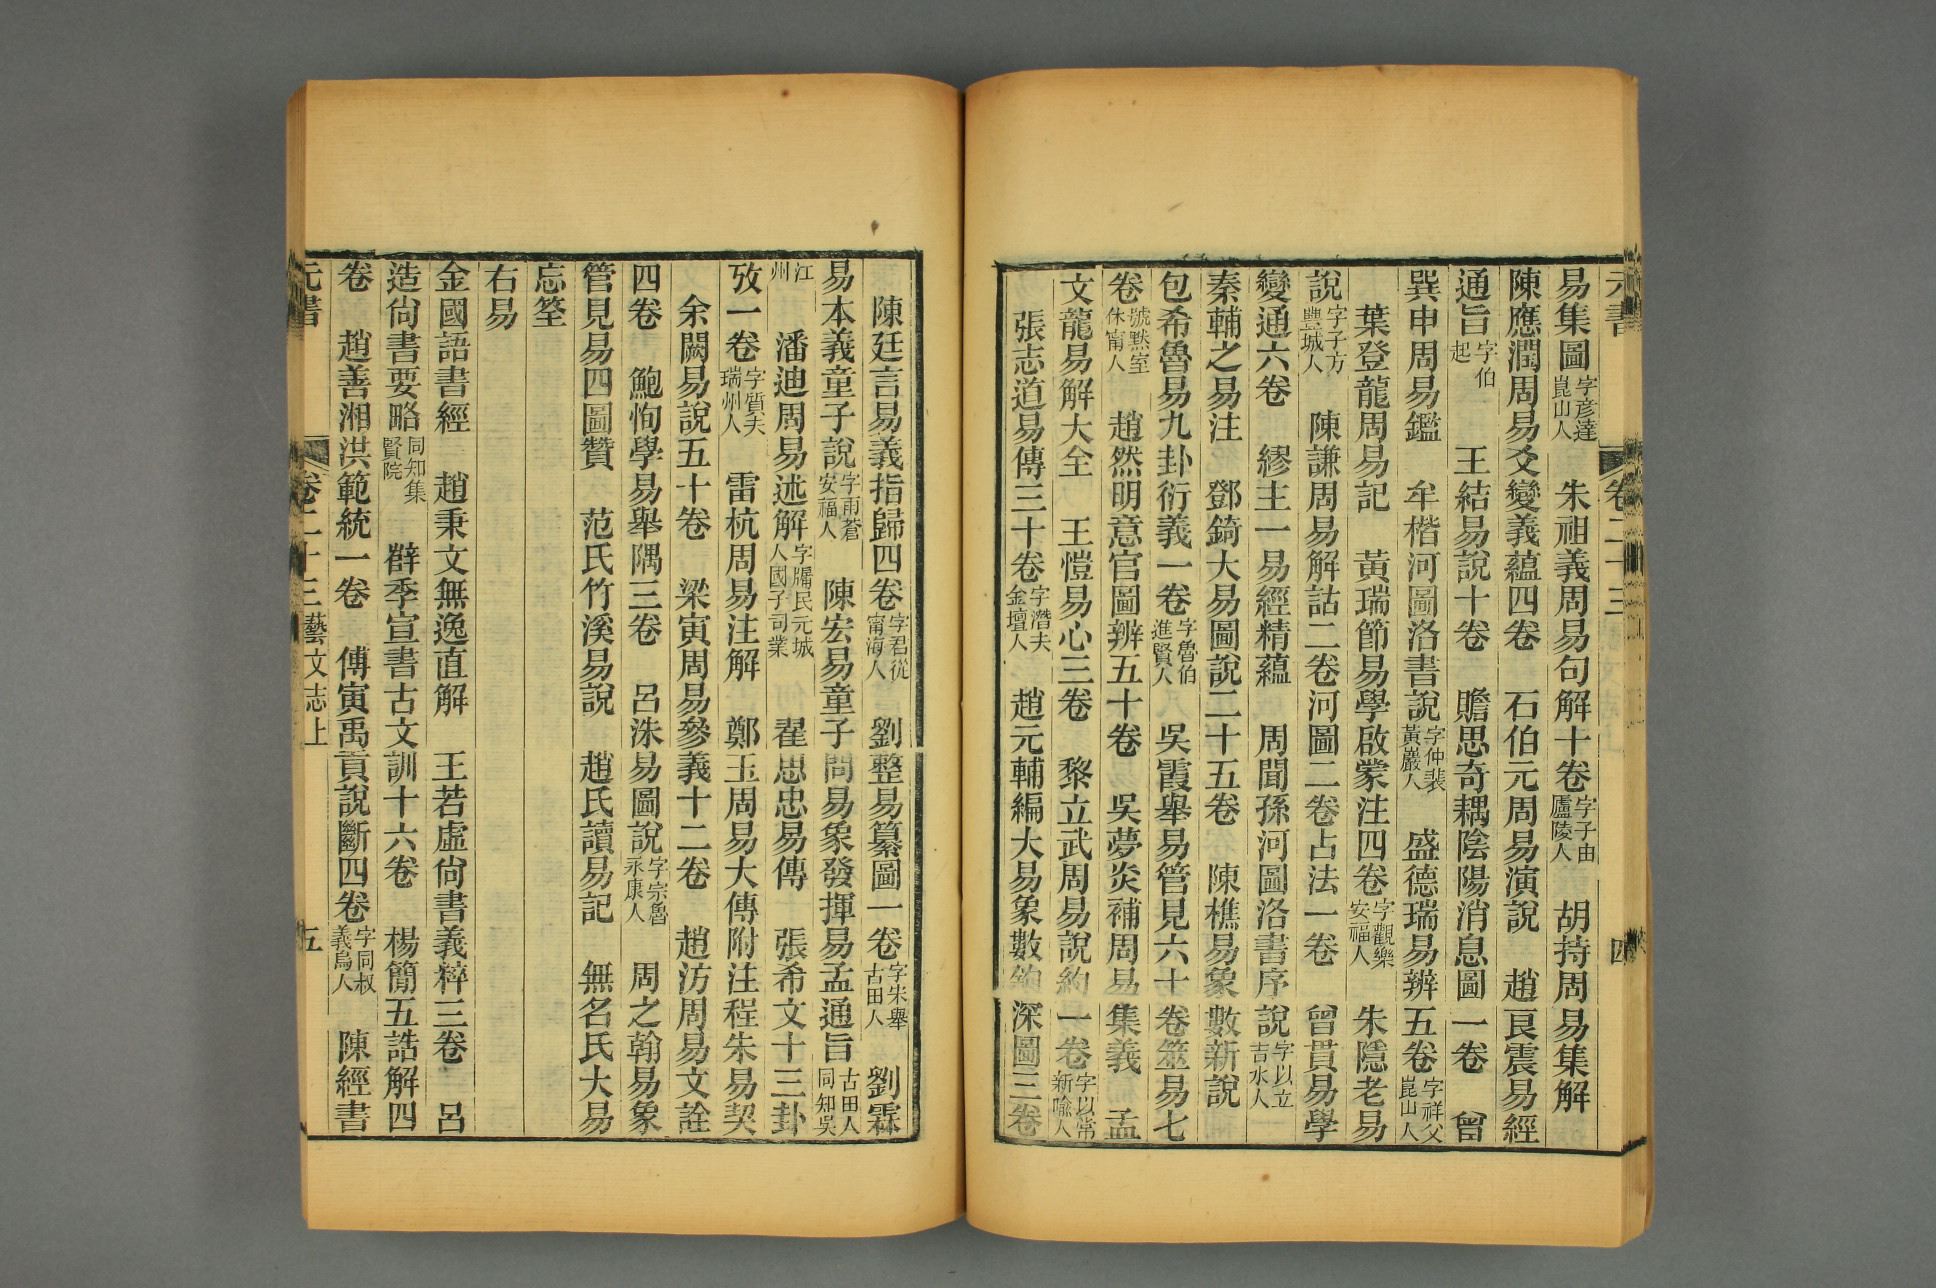 元書 卷二十三 四
易集圖字彥達崑山人 朱祖義周易句解十卷字子由廬陵人 胡持周易集解
陳應潤周易爻變義蘊四卷 石伯元周易演說 趙良震易經
通旨字伯起 王結易說十卷 贍思奇耦陰陽消息圖一卷 曾
巽申周易鑑 牟楷河圖洛書說字仲裴黃巖人 盛德瑞易辨五卷字祥父崑山人
葉登龍周易記 黃瑞節易學啟蒙注四卷字觀樂安福人 朱隱老易
說字子方豐城人 陳謙周易解詁二卷河圖二卷占法一卷 曾貫易學
變通六卷 繆主一易經精蘊 周聞孫河圖洛書序說字以立吉水人
秦輔之易注 鄧錡大易圖說二十五卷 陳樵易象數新說
包希魯易九卦衍義一卷字魯伯進賢人 吳霞舉易管見六十卷筮易七
卷號默室休甯人 趙然明意官圖辨五十卷 吳夢炎補周易集義 孟
文龍易解大全 王愷易心三卷 黎立武周易說約一卷字以常新喻人
張志道易傳三十卷字潛夫金壇人 趙元輔編大易象數鉤深圖三卷
陳廷言易義指歸四卷字君從甯海人 劉整易纂圖一卷字宋舉古田人 劉霖
易本義童子說字雨蒼安福人 陳宏易童子問易象發揮易孟通旨古田人同知吳
江州 潘迪周易述解字牖民元城人國子司業 翟思忠易傳 張希文十三卦
攷一卷字質夫瑞州人 雷杭周易注解 鄭玉周易大傳附注程朱易契
余闕易說五十卷 梁寅周易參義十二卷 趙汸周易文詮
四卷 鮑恂學易舉隅三卷 呂洙易圖說字宗魯永康人 周之翰易象
管見易四圖贊 范氏竹溪易說 趙氏讀易記 無名氏大易
忘筌
右易
金國語書經 趙秉文無逸直解 王若虛尙書義粹三卷 呂
造尙書要略同知集賢院 辥季宣書古文訓十六卷 楊簡五誥解四
卷 趙善湘洪範統一卷 傅寅禹貢說斷四卷字同叔義烏人 陳經書
元書 卷二十三 藝文志上 五